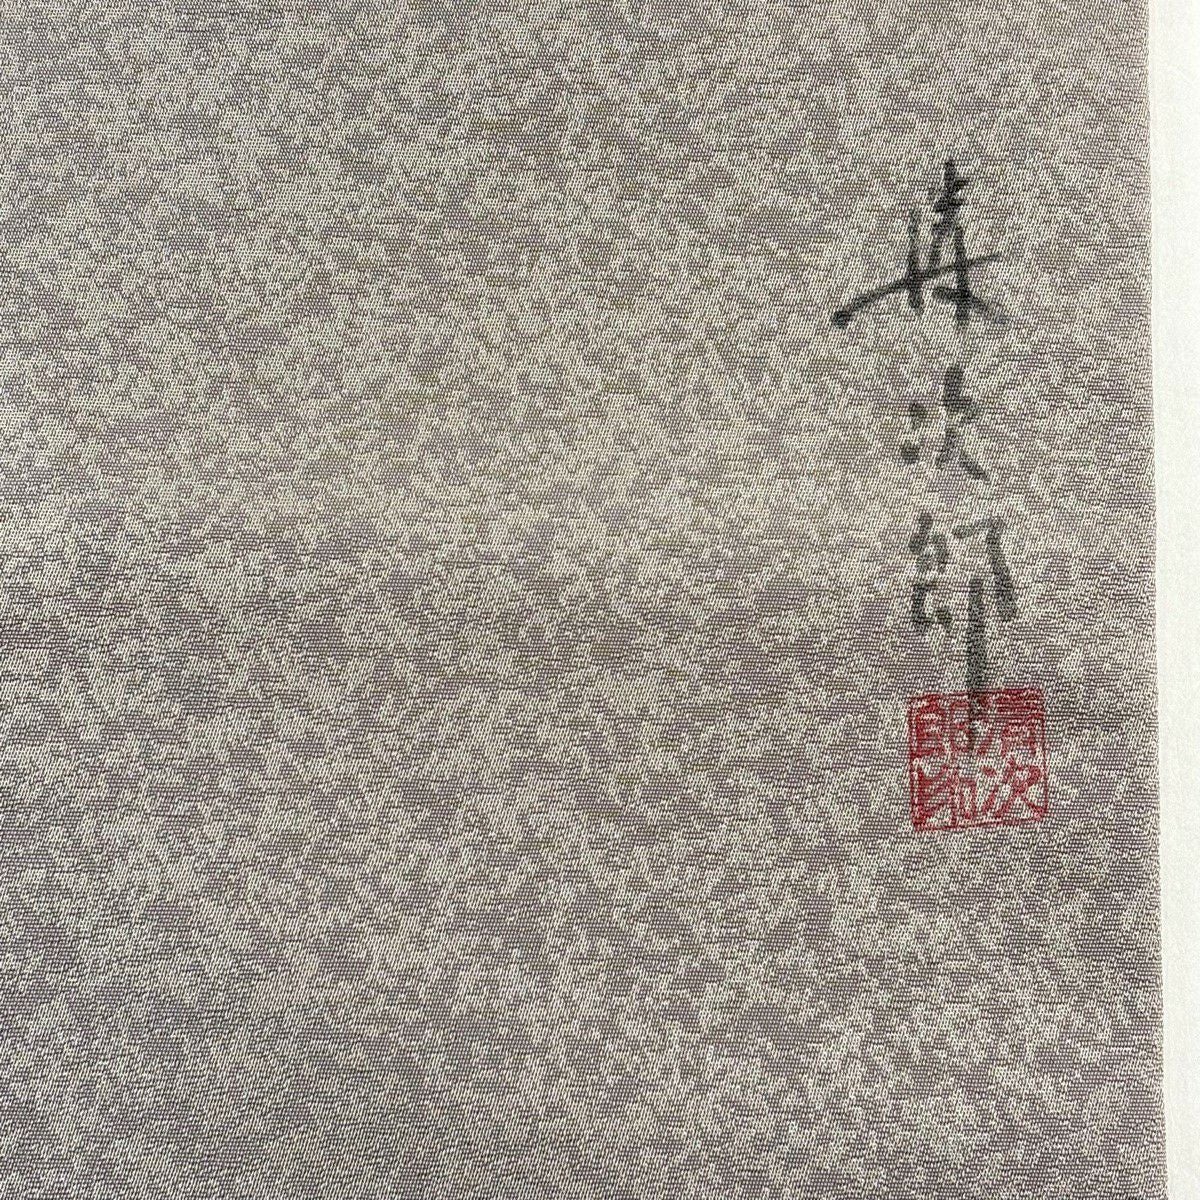 清次郎
清次郎印